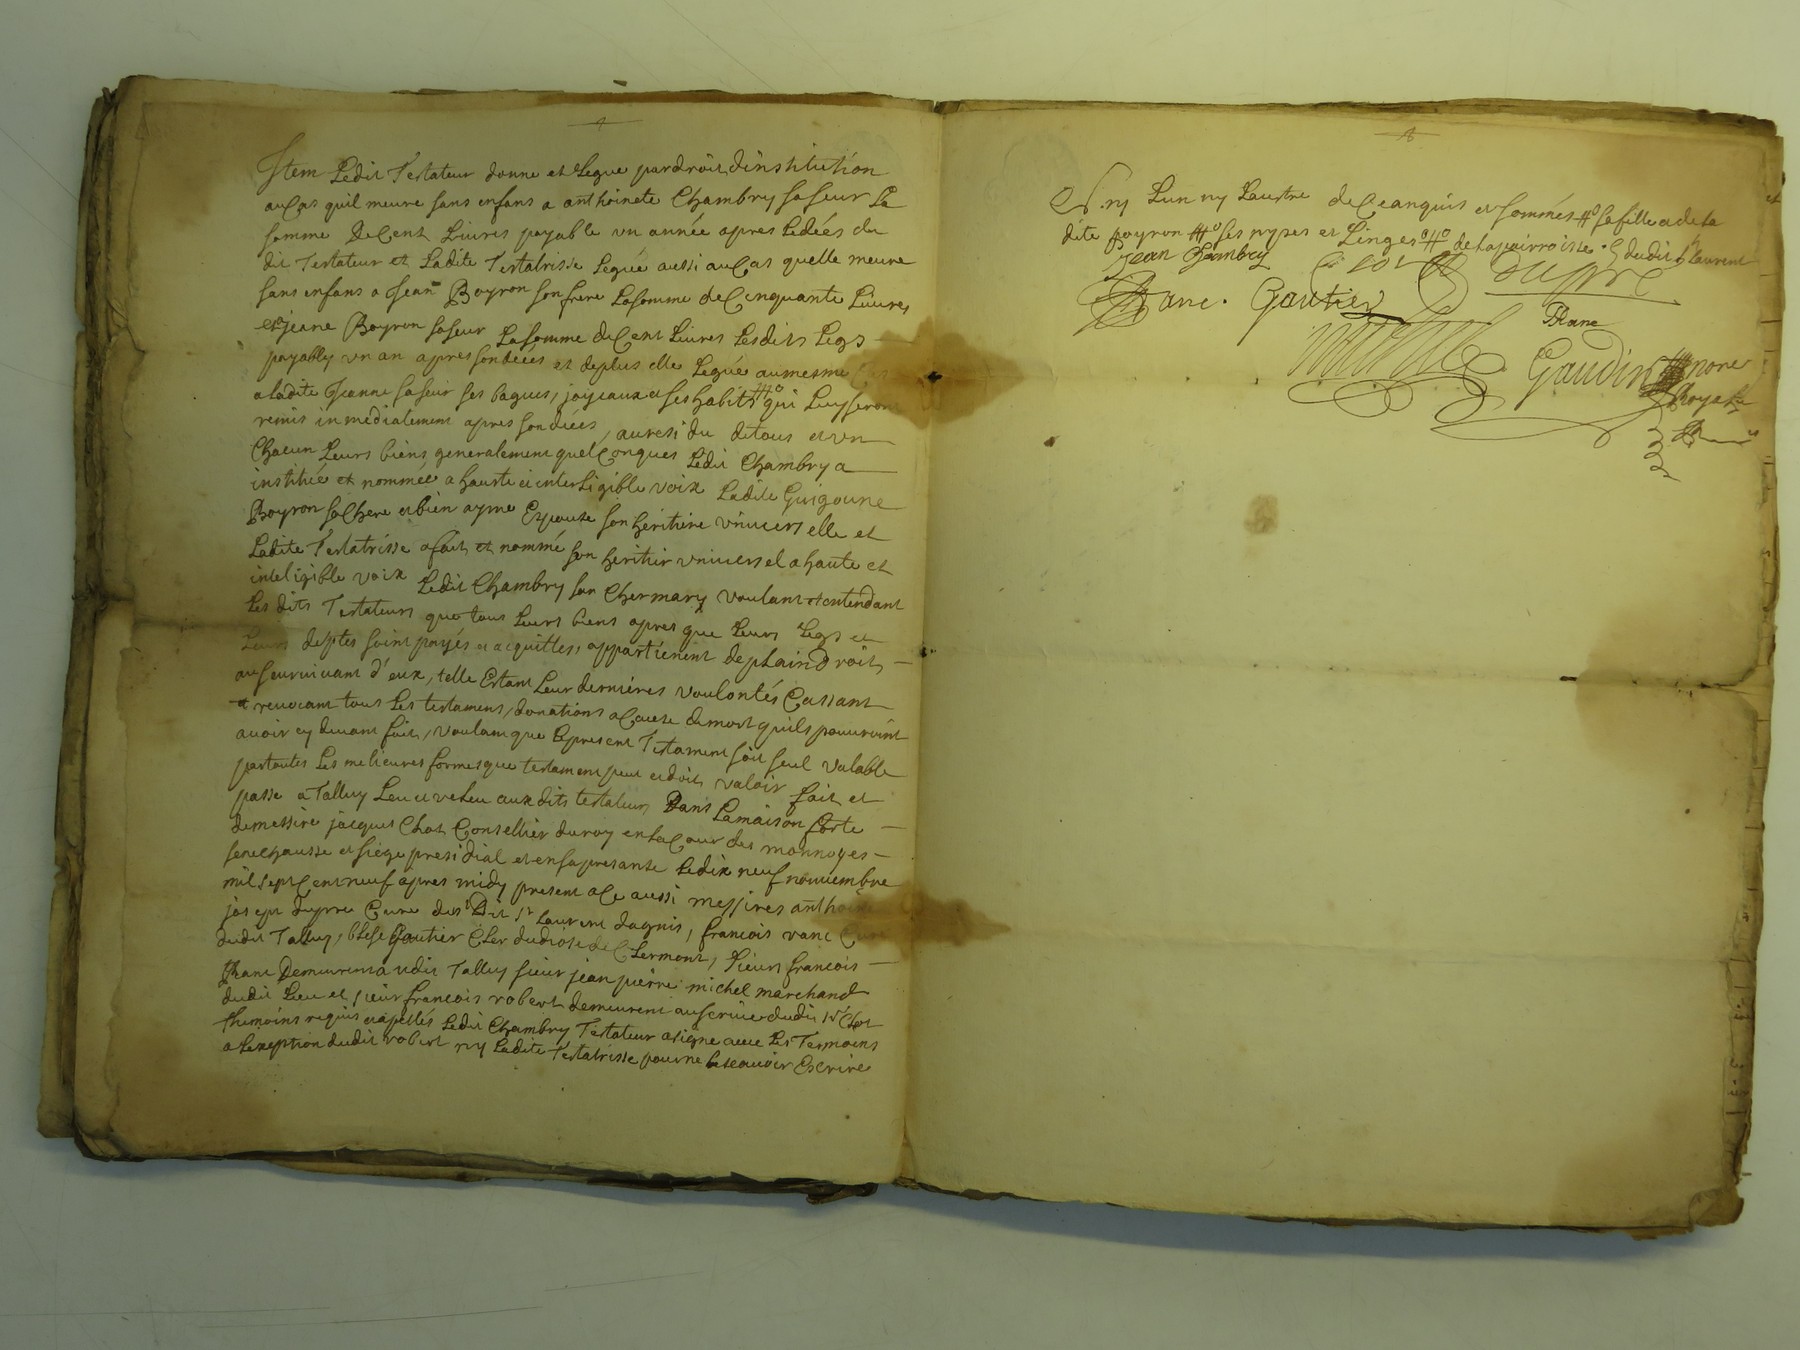 Item Ledit Testateur donne et Legue par droit dinstitution
au Cas quil meure sans enfans a anthoinete Chambry sa seur La
somme De Cent Livres payable un année apres Ledéés du
dit Testateur et Ladite Testatrisse Legue aussi au Cas quelle meure
sans enfans a Jean Boyron son frere La somme de Cinquante Livres
et jeane Boyron sa seur La somme de Cent Livres Lesdits Legs
payably un an apres son decés et deplus elle Legue au mesme
a Ladite Jeanne sa seur ses bagues, joyeaux et ses habits qui Luy seront
remis inmediatement apres son deces, au resi du de tous et un
Chacun Leurs biens generalement quelConques Ledit Chambry a
institué et nommée a haute et interligible voix Ladite Guigoune
Boyron sa Chere et bien ayme Espouse son héritiere universelle et
Ladite Testatrisse a fait et nommé son heritier universel a haute et
inteligible voix Ledit Chambry son Cher mary voulant et entendant
Les dits Testateurs que tous Leurs biens apres que Leurs Legs et
Leurs deptes soint payés et acquittes, appartienent de plain Droit
au survivant d'eux, telle Estant Leur dernières voulontés Cassant
et revocant tous Les testamens, donations a Cause de mort quils pouvroint
avoir cy devant fait, voulant que Le present Testament soit seul valable
par toutes Les melieures formes que testament peut et doit valoir fait et
passe a Talluy Leu et releu aux dits testateurs Dans La maison forte
de messire jacques Chot Consellier du roy en La Cour des monnoyes
senechausse et siege presidial et en sa presante Le dix neuf novembre
mil sept Cent neuf apres midy present a Ce aussi messires anthoine
joseph dupre Cure dudit St Laurent dagnis, francois vanc Cure
dudit Talluy, blese Gautier Cler du diose de Clermont, sieurs francois
thane Demeurent audit Talluy sieur jean pierre michel marchand
dudit Lieu et sieur francois robert demeurent au service dudit sr Chot
themoins requis et apellés Ledit Chambry Testateur a signe avec Les Temoens
a Lexeption dudit robert ny Ladite Testatrisse pour ne Le scavoir Escrire
Ny Lun ny Lautre de Ce enquis et sommés sa fille a de la
dite poyron ses nypes et Linges de la pairroisse. dudit St Laurent
Jean Chambry Chot dupre
Vanc. Gautier Thane
Gaudin